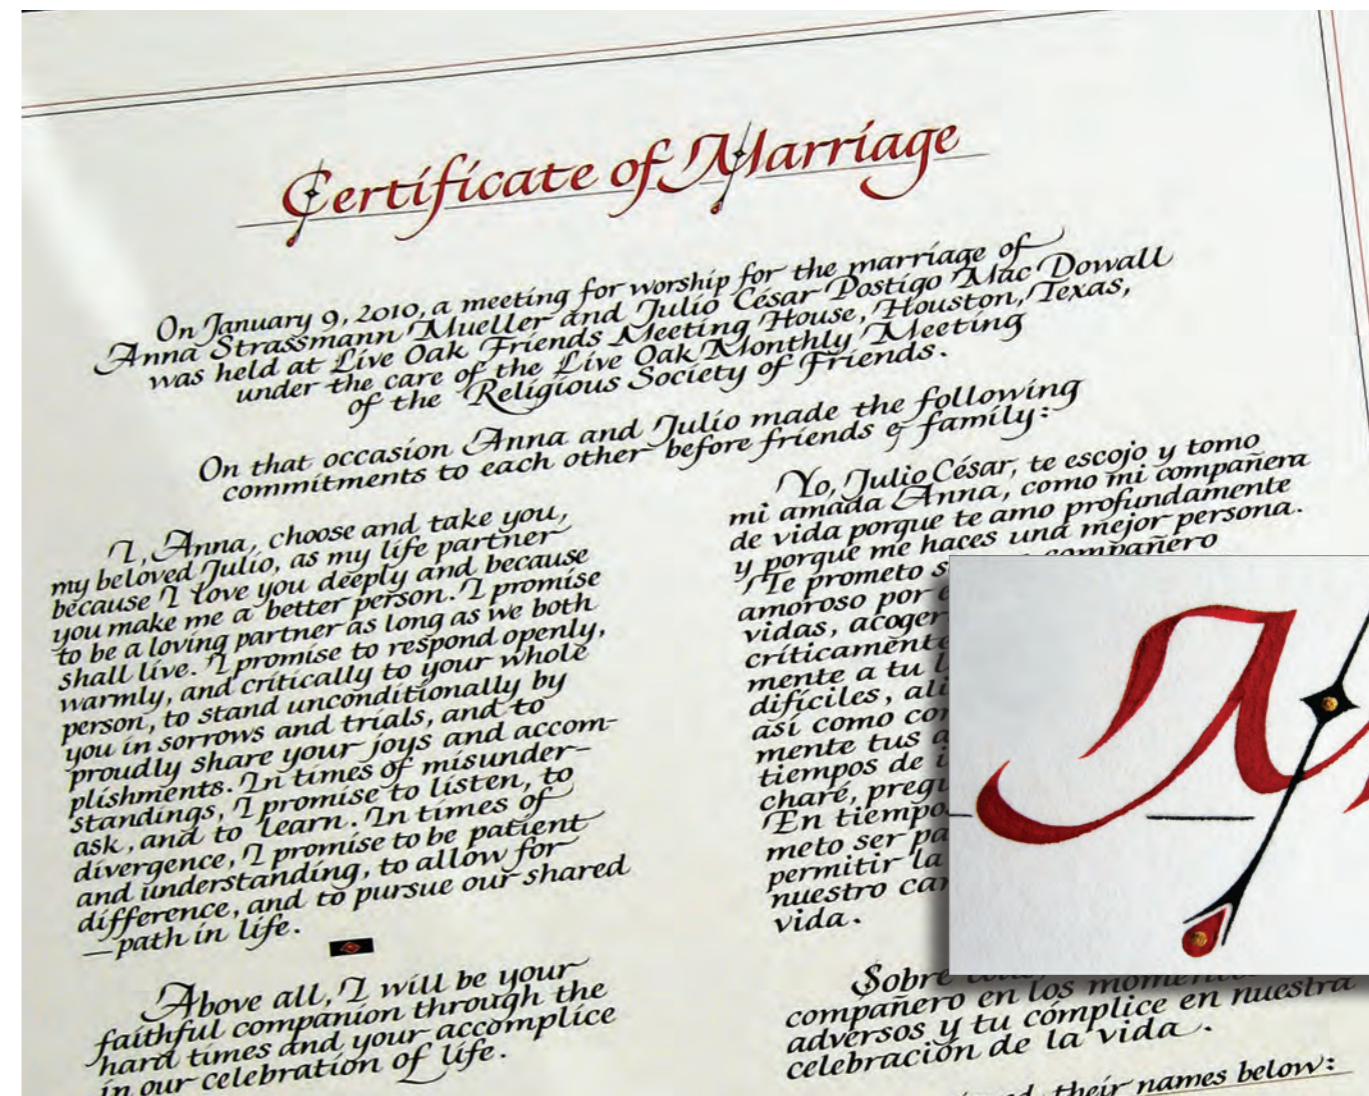 Certificate of Marriage
On January 9, 2010, a meeting for worship for the marriage of
Anna Strassmann Mueller and Julio César Postigo Mac Dowall
was held at Live Oak Friends Meeting House, Houston, Texas,
under the care of the Live Oak Monthly Meeting
of the Religious Society of Friends.
On that occasion Anna and Julio made the following
commitments to each other before friends & family:
I, Anna, choose and take you,
my beloved Julio, as my life partner
because I love you deeply and because
you make me a better person. I promise
to be a loving partner as long as we both
shall live. I promise to respond openly,
warmly, and critically to your whole
person, to stand unconditionally by
you in sorrows and trials, and to
proudly share your joys and accom-
plishments. In times of misunder-
standings, I promise to listen, to
ask, and to learn. In times of
divergence, I promise to be patient
and understanding, to allow for
difference, and to pursue our shared
path in life.
Above all, I will be your
faithful companion through the
hard times and your accomplice
in our celebration of life.
Yo, Julio César, te escojo y tomo
mi amada Anna, como mi compañera
de vida porque te amo profundamente
y porque me haces una mejor persona.
Te prometo compañero
amoroso por
vidas, acoger
críticamente
mente a tu
difíciles,
así como
mente tus
tiempos de
charé,
En
meto ser
permitir la
nuestro
vida.
Sobre
compañero en los momentos
adversos y tu cómplice en nuestra
celebración de la vida.
their names below:
M